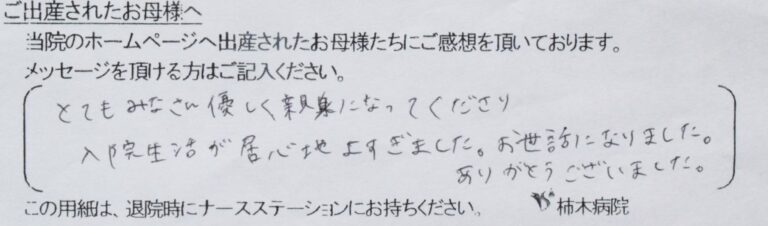 ご出産されたお母様へ
当院のホームページへ出産されたお母様たちにご感想を頂いております。
メッセージを頂ける方はご記入ください。
とてもみなさん優しく親身になってくださり
入院生活が居心地よすぎました。お世話になりました。
ありがとうございました。
この用紙は、退院時にナースステーションにお持ちください。 柿木病院